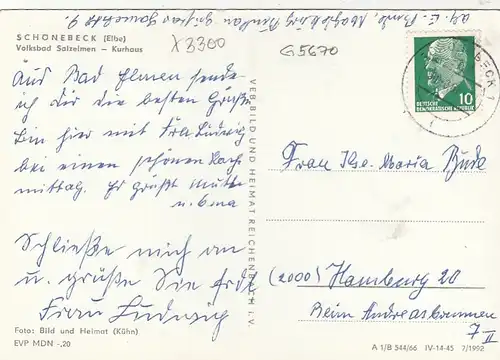 SCHÖNEBECK (Elbe)
Volksbad Salzelmen – Kurhaus
X3300
G5670
Aus Bad Elmen sende
ich Dir die besten Grüße
Bin hier mit Frau Ludwig
bei einen schönen Nach
mittag. Es grüßt Mutti
u. Oma
Schließe mich an
u. grüße Sie
Frau Ludwig
Foto: Bild und Heimat (Kühn)
EVP MDN -,20
VEB BILD UND HEIMAT REICHENBACH i. V.
BECK
10
DEUTSCHE
DEMOKRATISCHE REPUBLIK
Frau Ilse-Maria Bude
(2000) Hamburg 20
Beim Andreasbrunnen
7 II
A 1/B 544/66 IV-14-45 7/1992